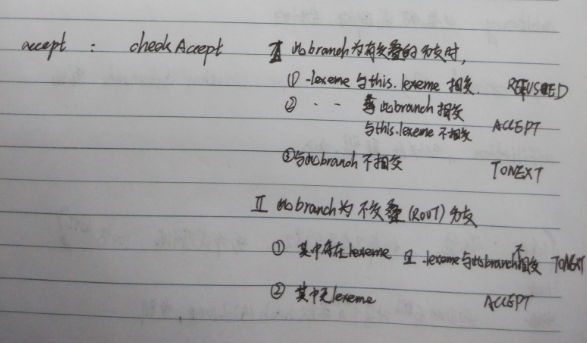 accept : checkAccept I 此branch为有交叠的分支时,
① -lexeme与this.lexeme 相交. REFUSED
② - - 与此branch相交
与this.lexeme不相交 ACCEPT
③与此branch不相交 TONEXT
II 此branch为不交叠(ROOT)分支
① 其中存在lexeme 且 -lexeme与此branch不相交 TONEXT
② 其中无lexeme ACCEPT